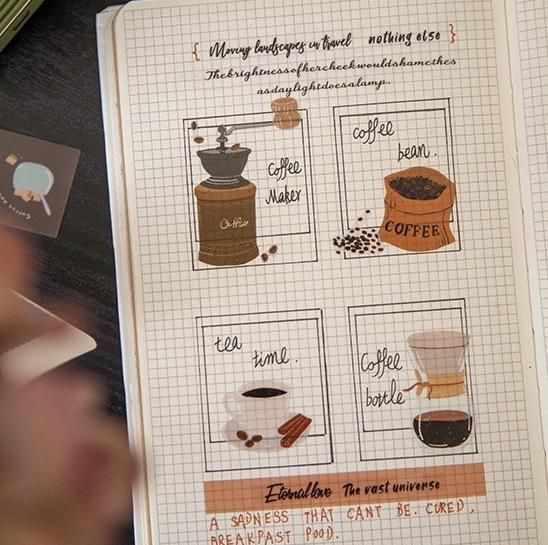 { Moving landscapes in travel nothing else }
Thebrightnessofhercheekwouldshamethes
asdaylightdoesalamp..
Coffee
Maker
Coffee
coffee
bean.
COFFEE
tea
time.
Coffee
bottle
Eternal love The vast universe
A SADNESS THAT CANT BE. CURED,
BREAKPAST POOD.